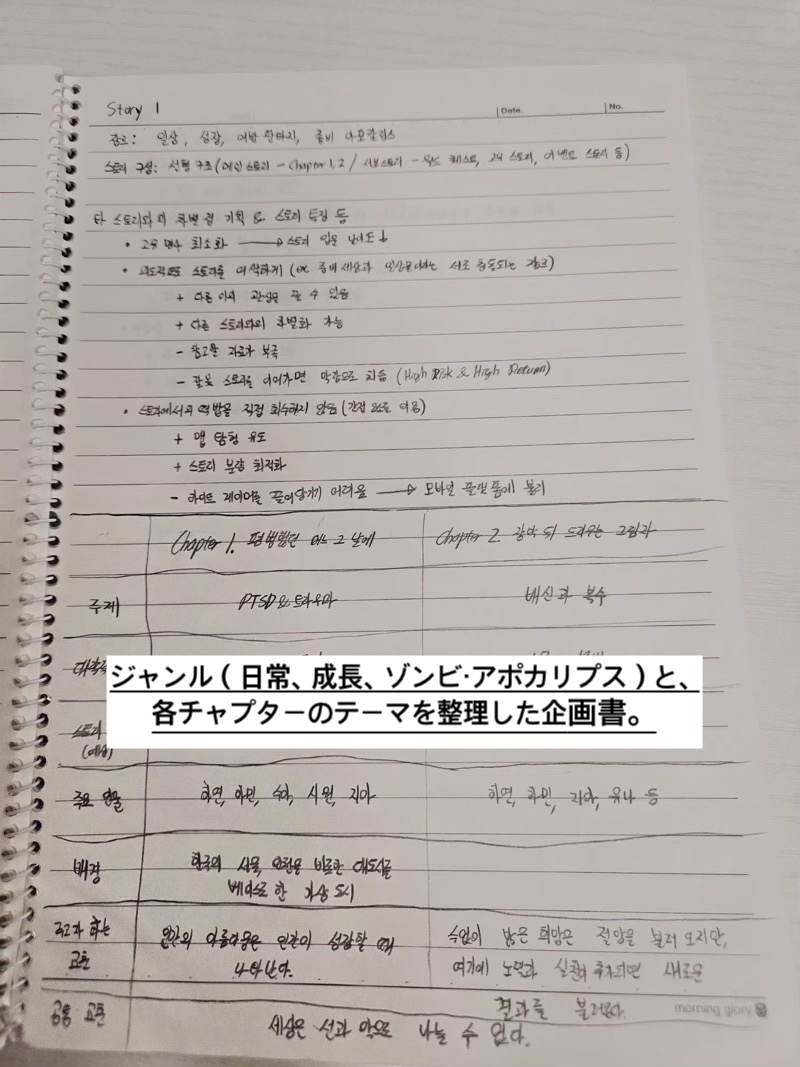 Story 1
Date.
No.
장르: 일상, 성장, 어반 판타지, 좀비 아포칼립스
스토리 구성: 선형 구조 (메인 스토리 - Chapter 1, 2 / 서브 스토리 - 월드 퀘스트, 스토리, 이벤트 스토리 등)
타 스토리와의 차별점 기획 & 스토리 특징 등
• 고유 명사 최소화 → 스토리 입문 난이도 ↓
• 스토리를 (ex 좀비 세상과 일상물이라는 서로 장르)
+ 다른 이의 관심을 끌 수 있음
+ 다른 스토리와의 차별화 가능
- 참고할 자료가 부족
- 잘못 스토리를 이어가면 막장으로 치솟 (High Risk & High Return)
• 스토리에서의 떡밥을 직접 회수하지 않음 (간접 요소로 이용)
+ 맵 탐험 유도
+ 스토리 분량 최적화
- 라이트 게이머를 끌어당기기 어려움 → 모바일 플랫폼에 불리
Chapter 1. 평범했던 어느 그 날에
Chapter 2. 장막 뒤 드리우는 그림자
주제
PTSD & 트라우마
배신과 복수
ジャンル(日常、成長、ゾンビ・アポカリプス)と、
各チャプターのテーマを整理した企画書。
스토리
(예상)
주요 인물
하연, 하민, 수아, 시원, 지아
하연, 하민, 지아, 유나 등
배경
한국의 서울, 인천을 비롯한 대도시를
베이스로 한 가상 도시
주고자 하는
교훈
아름다움은 인간이 성장할 때
나타난다.
수없이 많은 희망은 절망을 불러 오지만,
여기에 노력과 실천이 추가되면 새로운
결과를 불러온다.
morning glory
공통 교훈
세상은 선과 악으로 나눌 수 없다.